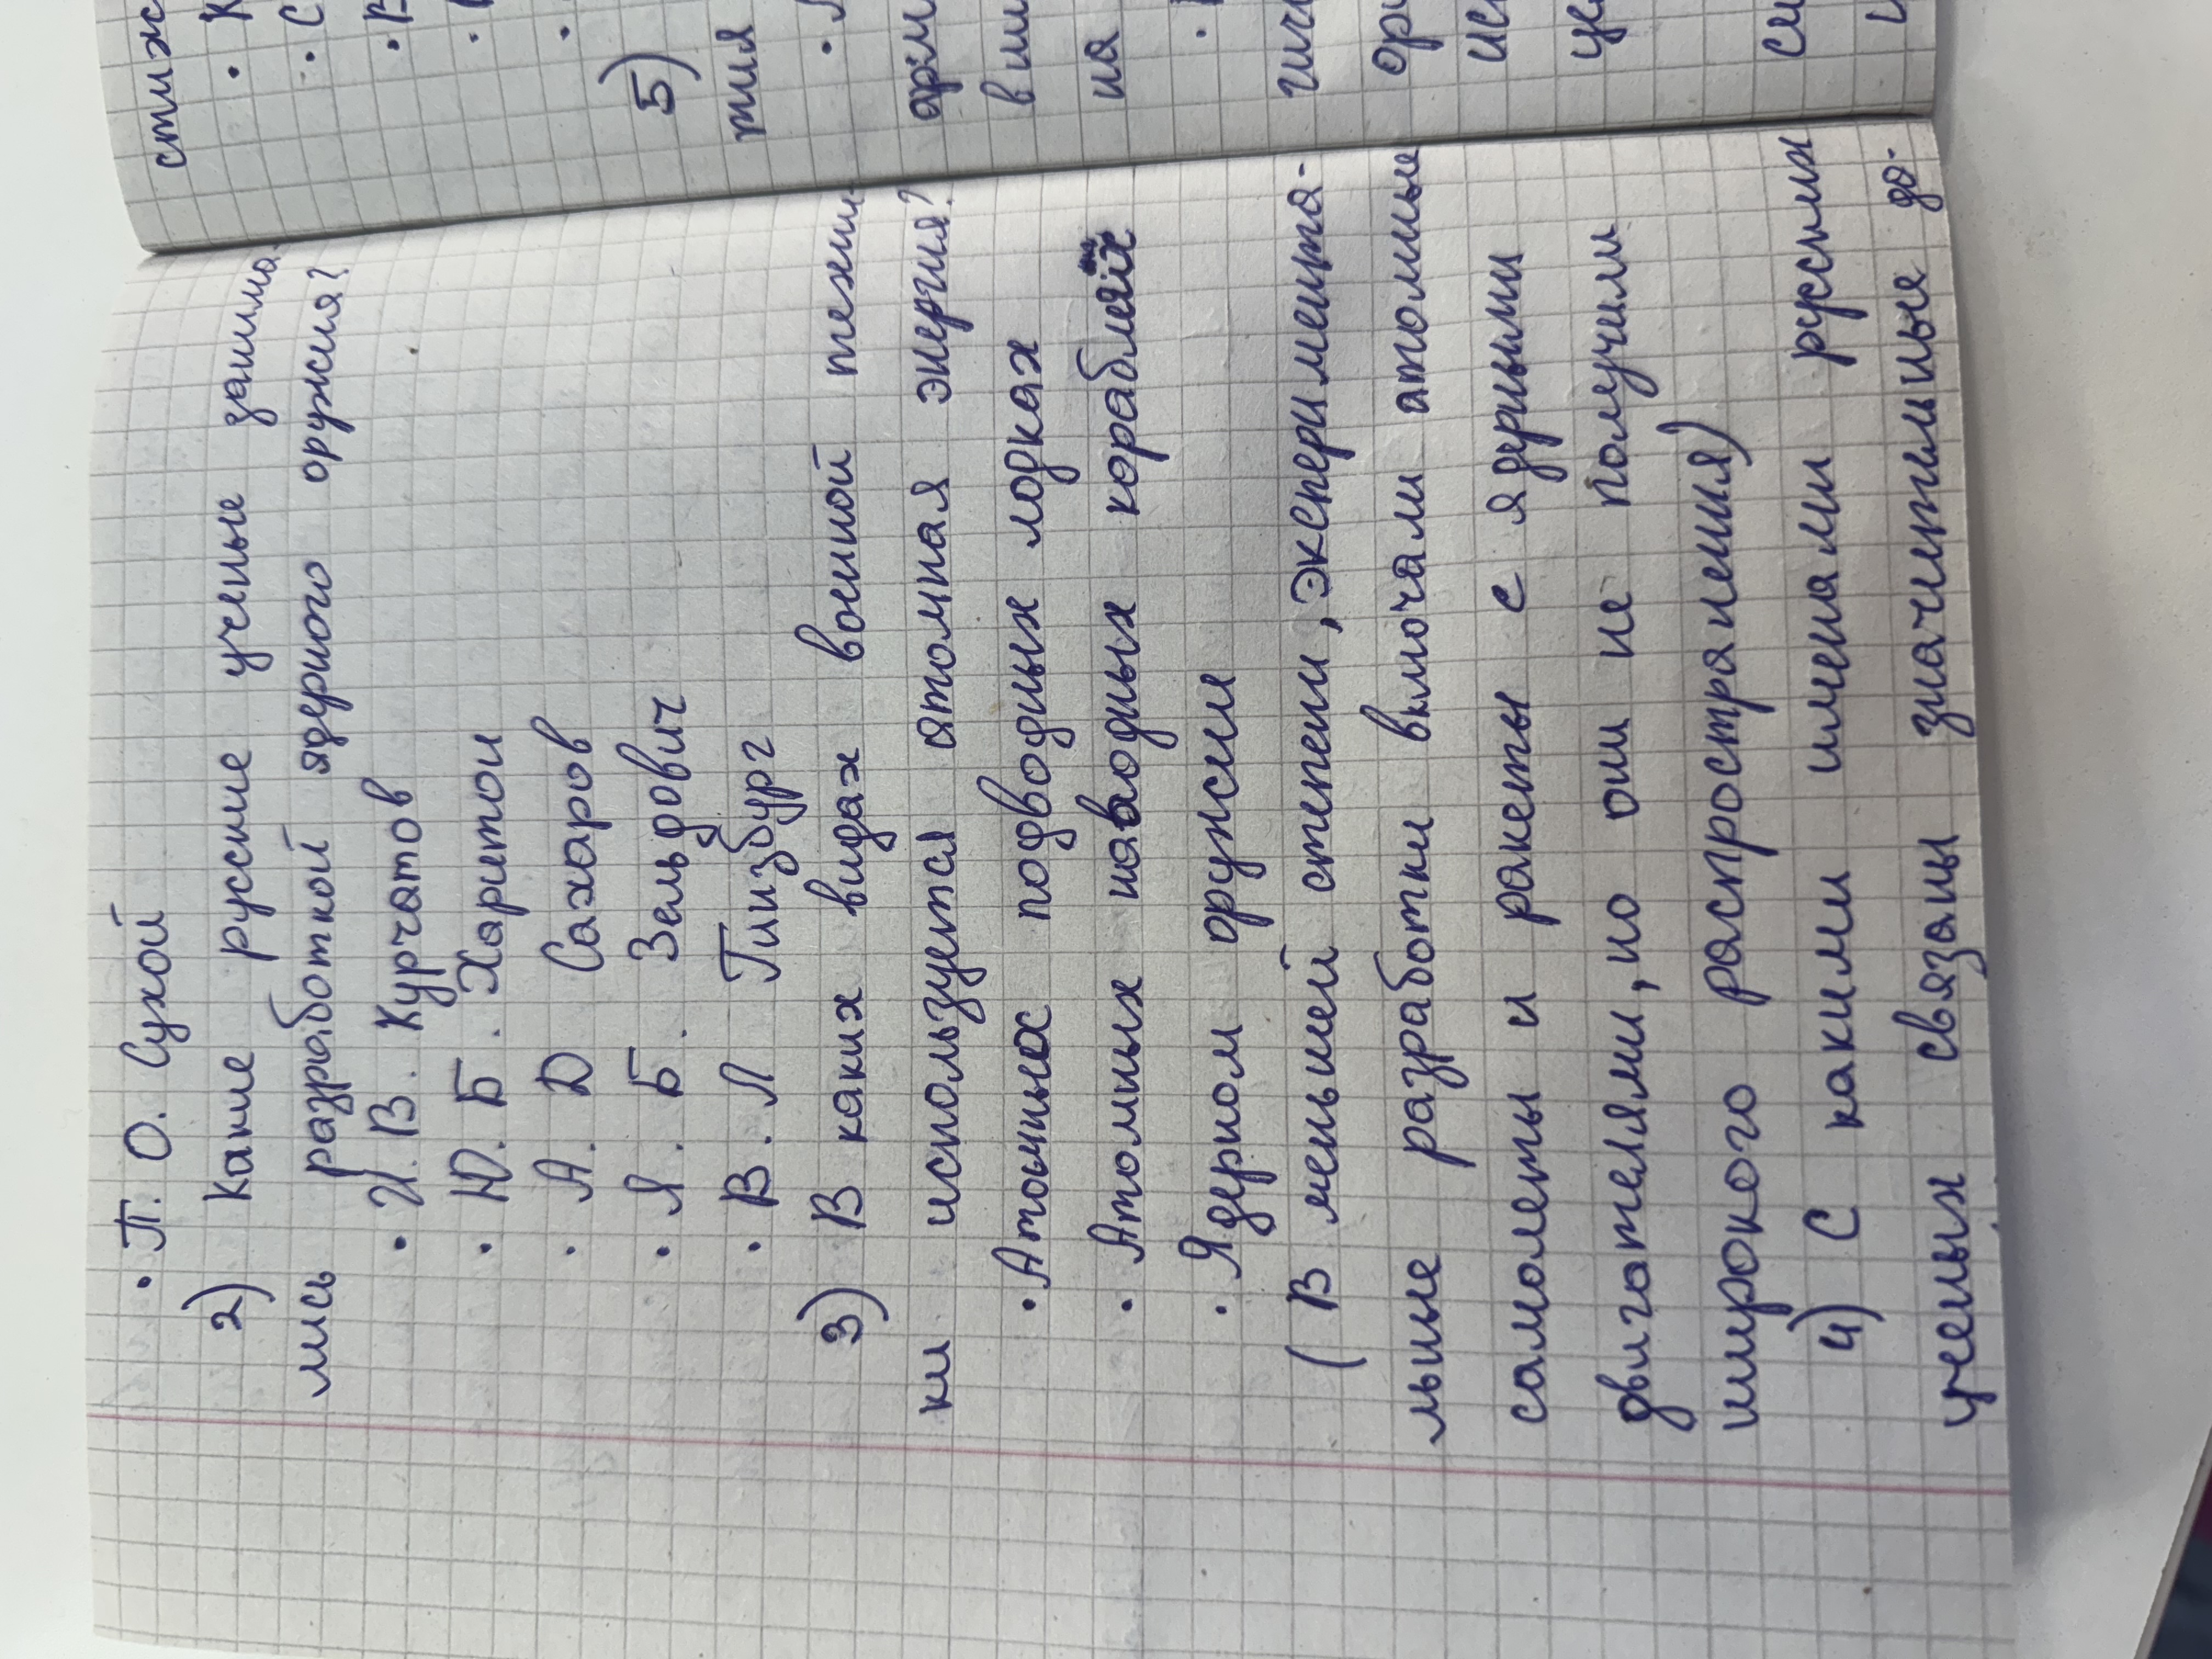 • П. О. Сухой
2) Какие русские ученые занима-
лись разработкой ядерного оружия?
• И. В. Курчатов
• Ю. Б. Харитон
• А. Д Сахаров
• Я. Б. Зельдович
• В. Л Гинзбург
3) В каких видах военной техни-
ки используется атомная энергия?
• Атомных подводных лодках
• Атомных наводных кораблях
• Ядерном оружии
( В меньшей степени, эксперимента-
льные разработки включали атомные
самолеты и ракеты с ядерными
двигателями, но они не получили
широкого распространения)
4) С какими именами русских
ученых связаны значительные до-
стиж
• К
• С
• В
5)
тия
в
на